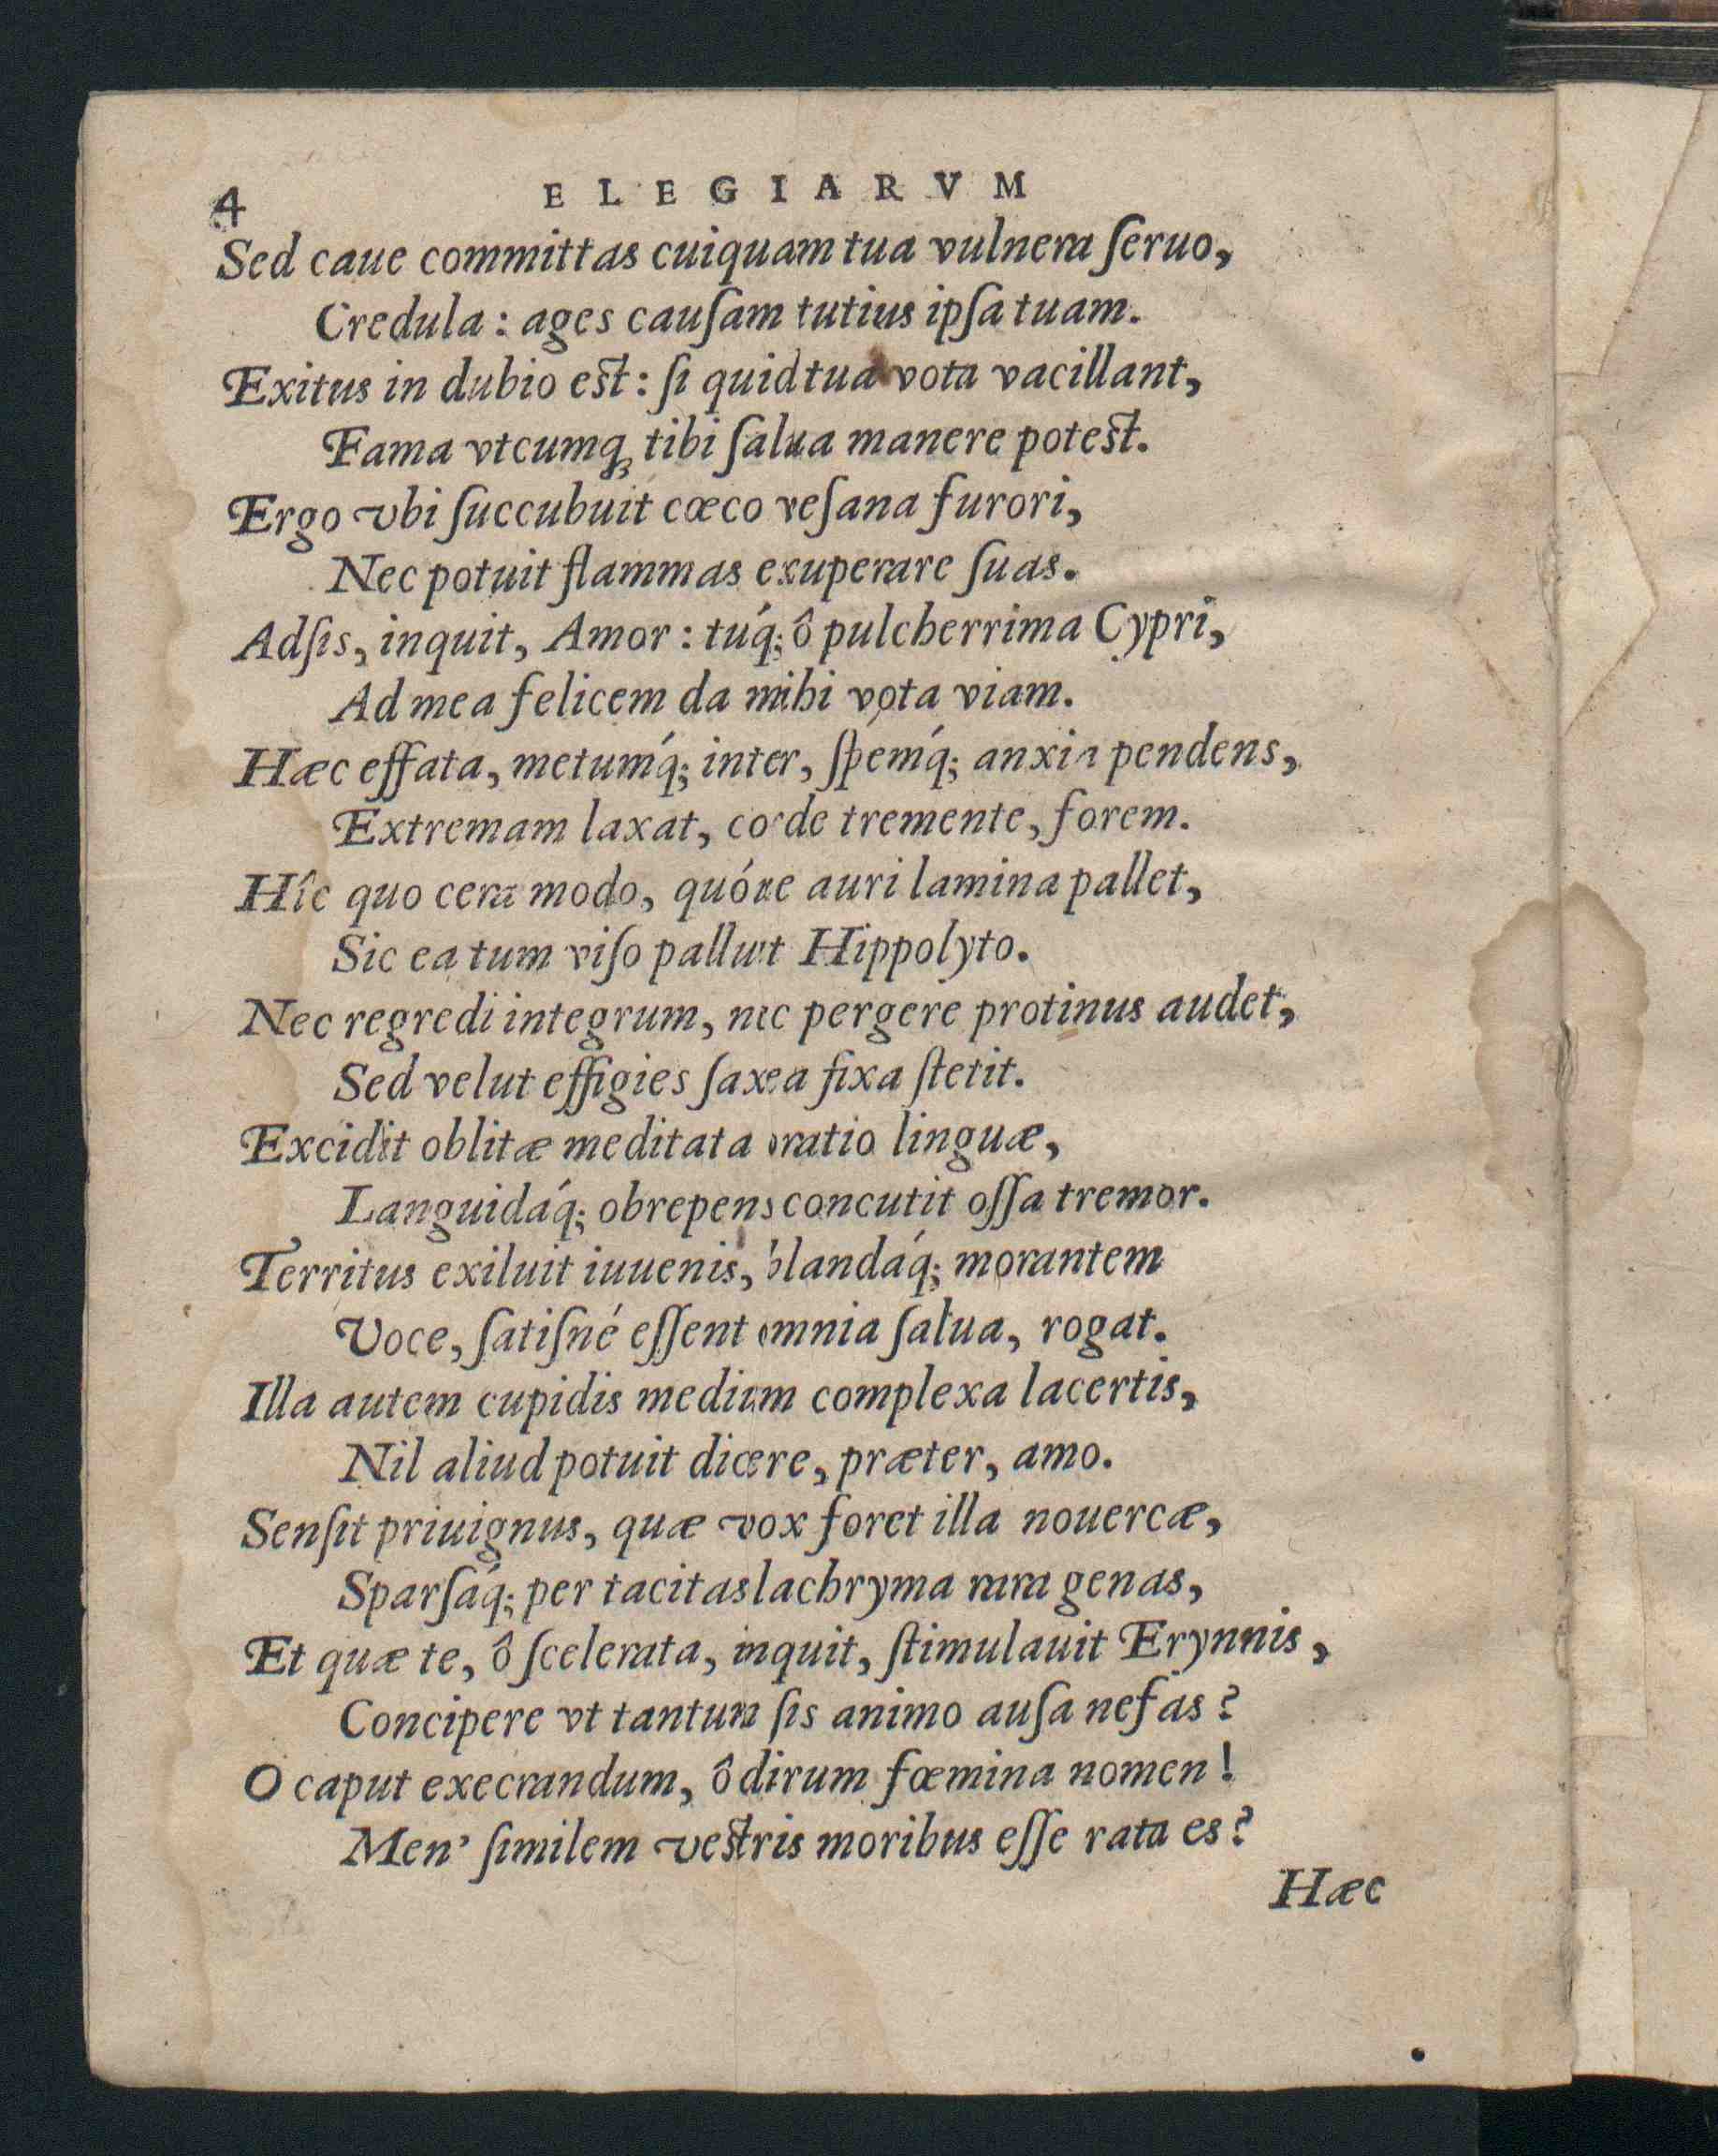 4 ELEGIARVM
Sed caue committas cuiquam tua vulnera ſeruo,
Credula: ages cauſam tutius ipſa tuam.
Exitus in dubio est: ſi quid tua vota vacillant,
Fama vtcumq; tibi ſalua manere potest.
Ergo vbi ſuccubuit cœco veſana furori,
Nec potuit flammas exuperare ſuas.
Adſis, inquit, Amor: túq; ô pulcherrima Cypri,
Ad mea felicem da mihi vota viam.
Hæc effata, metumq́; inter, ſpemq́; anxia pendens,
Extremam laxat, corde tremente, forem.
Hîc quo cera modo, quóue auri lamina pallet,
Sic ea tum viſo palluit Hippolyto.
Nec regredi integrum, nec pergere protinus audet,
Sed velut effigies ſaxea fixa ſtetit.
Excidit oblitæ meditata oratio linguæ,
Languidáq; obrepens concutit oſſa tremor.
Territus exiluit iuuenis, blandáq; morantem
Voce, ſatiſné eſſent omnia ſalua, rogat.
Illa autem cupidis medium complexa lacertis,
Nil aliud potuit dicere, præter, amo.
Senſit priuignus, quæ vox foret illa nouercæ,
Sparſáq; per tacitas lachryma rara genas,
Et quæ te, ô ſcelerata, inquit, ſtimulauit Erynnis,
Concipere vt tantum ſis animo auſa nefas?
O caput execrandum, ô dirum fœmina nomen!
Men' ſimilem vestris moribus eſſe rata es?
Hæc